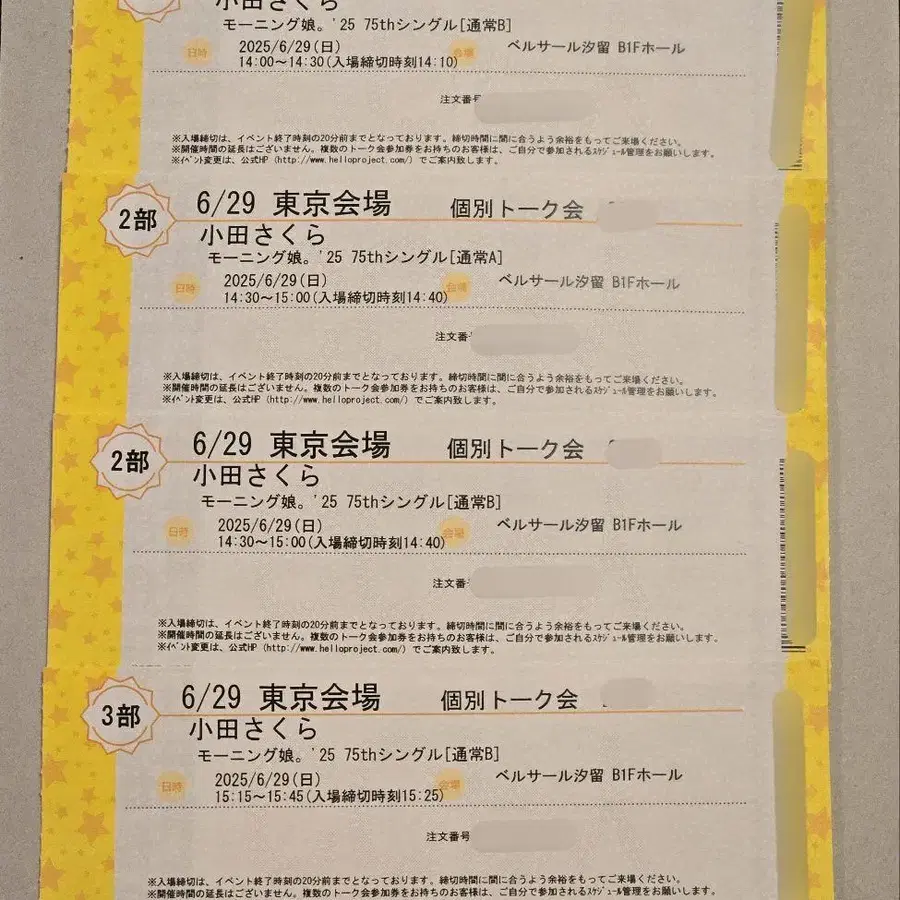 小田さくら
モーニング娘。'25 75thシングル[通常B]
日時 2025/6/29(日) 会場 ベルサール汐留 B1Fホール
14:00～14:30(入場締切時刻14:10)
注文番号
※入場締切は、イベント終了時刻の20分前までとなっております。締切時間に間に合うよう余裕をもってご来場ください。
※開催時間の延長はございません。複数のトーク会参加券をお持ちのお客様は、ご自分で参加されるｽｹｼﾞｭｰﾙ管理をお願いします。
※ｲﾍﾞﾝﾄ変更は、公式HP (http://www.helloproject.com/) でご案内致します。
2部 6/29 東京会場 個別トーク会
小田さくら
モーニング娘。'25 75thシングル[通常A]
日時 2025/6/29(日) 会場 ベルサール汐留 B1Fホール
14:30～15:00(入場締切時刻14:40)
注文番
※入場締切は、イベント終了時刻の20分前までとなっております。締切時間に間に合うよう余裕をもってご来場ください。
※開催時間の延長はございません。複数のトーク会参加券をお持ちのお客様は、ご自分で参加されるｽｹｼﾞｭｰﾙ管理をお願いします。
※ｲﾍﾞﾝﾄ変更は、公式HP (http://www.helloproject.com/) でご案内致します。
2部 6/29 東京会場 個別トーク会
小田さくら
モーニング娘。'25 75thシングル[通常B]
日時 2025/6/29(日) 会場 ベルサール汐留 B1Fホール
14:30～15:00(入場締切時刻14:40)
注文番
※入場締切は、イベント終了時刻の20分前までとなっております。締切時間に間に合うよう余裕をもってご来場ください。
※開催時間の延長はございません。複数のトーク会参加券をお持ちのお客様は、ご自分で参加されるｽｹｼﾞｭｰﾙ管理をお願いします。
※ｲﾍﾞﾝﾄ変更は、公式HP (http://www.helloproject.com/) でご案内致します。
3部 6/29 東京会場 個別トーク会
小田さくら
モーニング娘。'25 75thシングル[通常B]
日時 2025/6/29(日) 会場 ベルサール汐留 B1Fホール
15:15～15:45(入場締切時刻15:25)
注文番号
※入場締切は、イベント終了時刻の20分前までとなっております。締切時間に間に合うよう余裕をもってご来場ください。
※開催時間の延長はございません。複数のトーク会参加券をお持ちのお客様は、ご自分で参加されるｽｹｼﾞｭｰﾙ管理をお願いします。